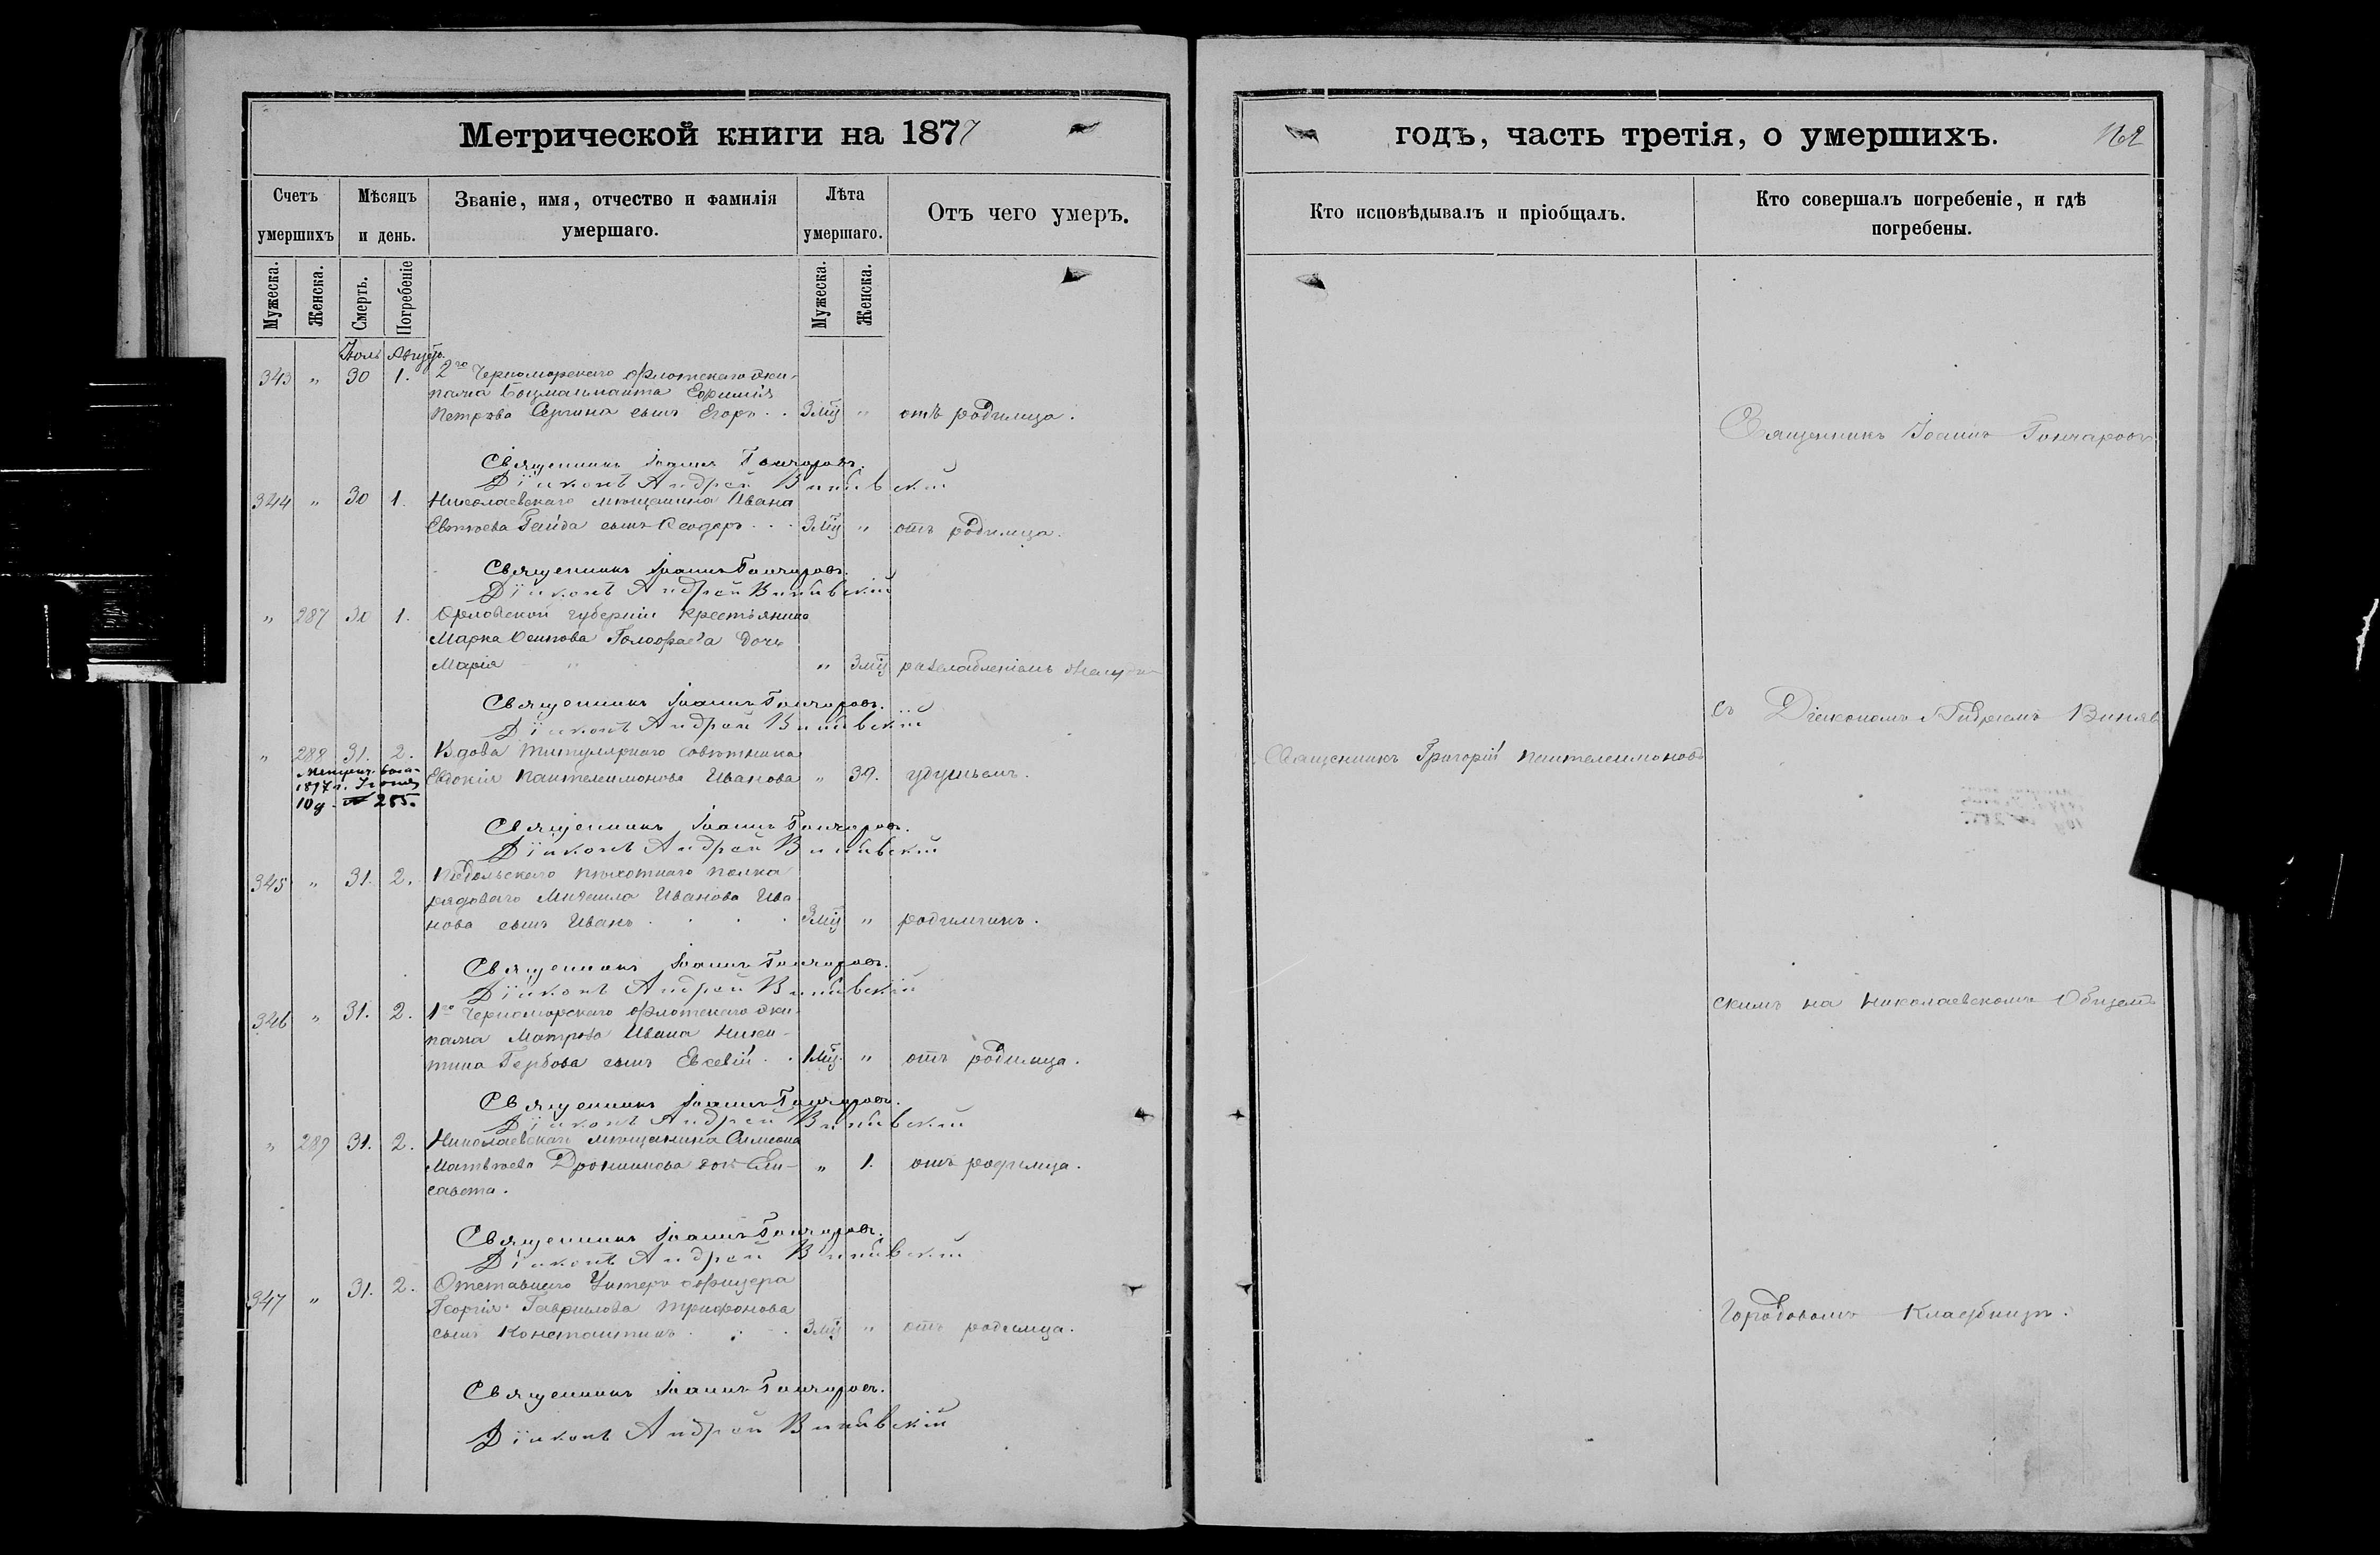 Метрической книги на 1877
Счетъ умершихъ
Мѣсяцъ и день.
Званіе, имя, отчество и фамилія умершаго.
Лѣта умершаго.
Отъ чего умеръ.
Мужеска.
Женска.
Смерть.
Погребеніе
Мужеска.
Женска.
Іюль Августъ
343 " 30 1. 2го Черноморскаго флотскаго эки-
пажа Боцманмата Ефимія
Петрова сынъ Егоръ . . 3 мц " отъ родимца.
Священникъ Іоаннъ Гончаровъ.
Діаконъ Андрей Винявскій
344 " 30 1. Николаевскаго мѣщанина Ивана
Гайда сынъ Ѳеодоръ . . . 3 мц " отъ родимца.
Священникъ Іоаннъ Гончаровъ.
Діаконъ Андрей Винявскій
" 287 30 1. Орловской губерніи крестьянина
Марка Осипова дочь
Марія " " 3 мц разслабленіемъ
Священникъ Іоаннъ Гончаровъ.
Діаконъ Андрей Винявскій
" 288 31. 2. Вдова титулярнаго совѣтника
Евдокія Пантелеимонова Иванова " 39. удушьемъ.
10 д. № 285.
Священникъ Іоаннъ Гончаровъ.
Діаконъ Андрей Винявскій
345 " 31. 2. Подольскаго пѣхотнаго полка
рядоваго Михаила Иванова Ива-
нова сынъ Иванъ . . . . 3 мц " родимчикъ.
Священникъ Іоаннъ Гончаровъ.
Діаконъ Андрей Винявскій
346 " 31. 2. 1го Черноморскаго флотскаго эки-
пажа Матроса Ивана Ники-
тина Гербова сынъ Евсевій . . 1 мц. " отъ родимца.
Священникъ Іоаннъ Гончаровъ.
Діаконъ Андрей Винявскій
" 289 31. 2. Николаевскаго мѣщанина Симеона
Матвѣева дочь Ели- " 1. отъ родимца.
савета.
Священникъ Іоаннъ Гончаровъ.
Діаконъ Андрей Винявскій
347 " 31. 2. Отставнаго Унтеръ офицера
Георгія Гаврилова Трифонова
сынъ Константинъ . . . 3 мц " отъ родимца.
Священникъ Іоаннъ Гончаровъ.
Діаконъ Андрей Винявскій
годъ, часть третія, о умершихъ.
Кто исповѣдывалъ и пріобщалъ.
Кто совершалъ погребеніе, и гдѣ погребены.
Священникъ Іоаннъ Гончаровъ
съ Діакономъ Андреемъ Виняв
Священникъ Григорій Пантелеимоновъ
скимъ на Николаевскомъ Общемъ
Городовомъ Кладбищѣ.